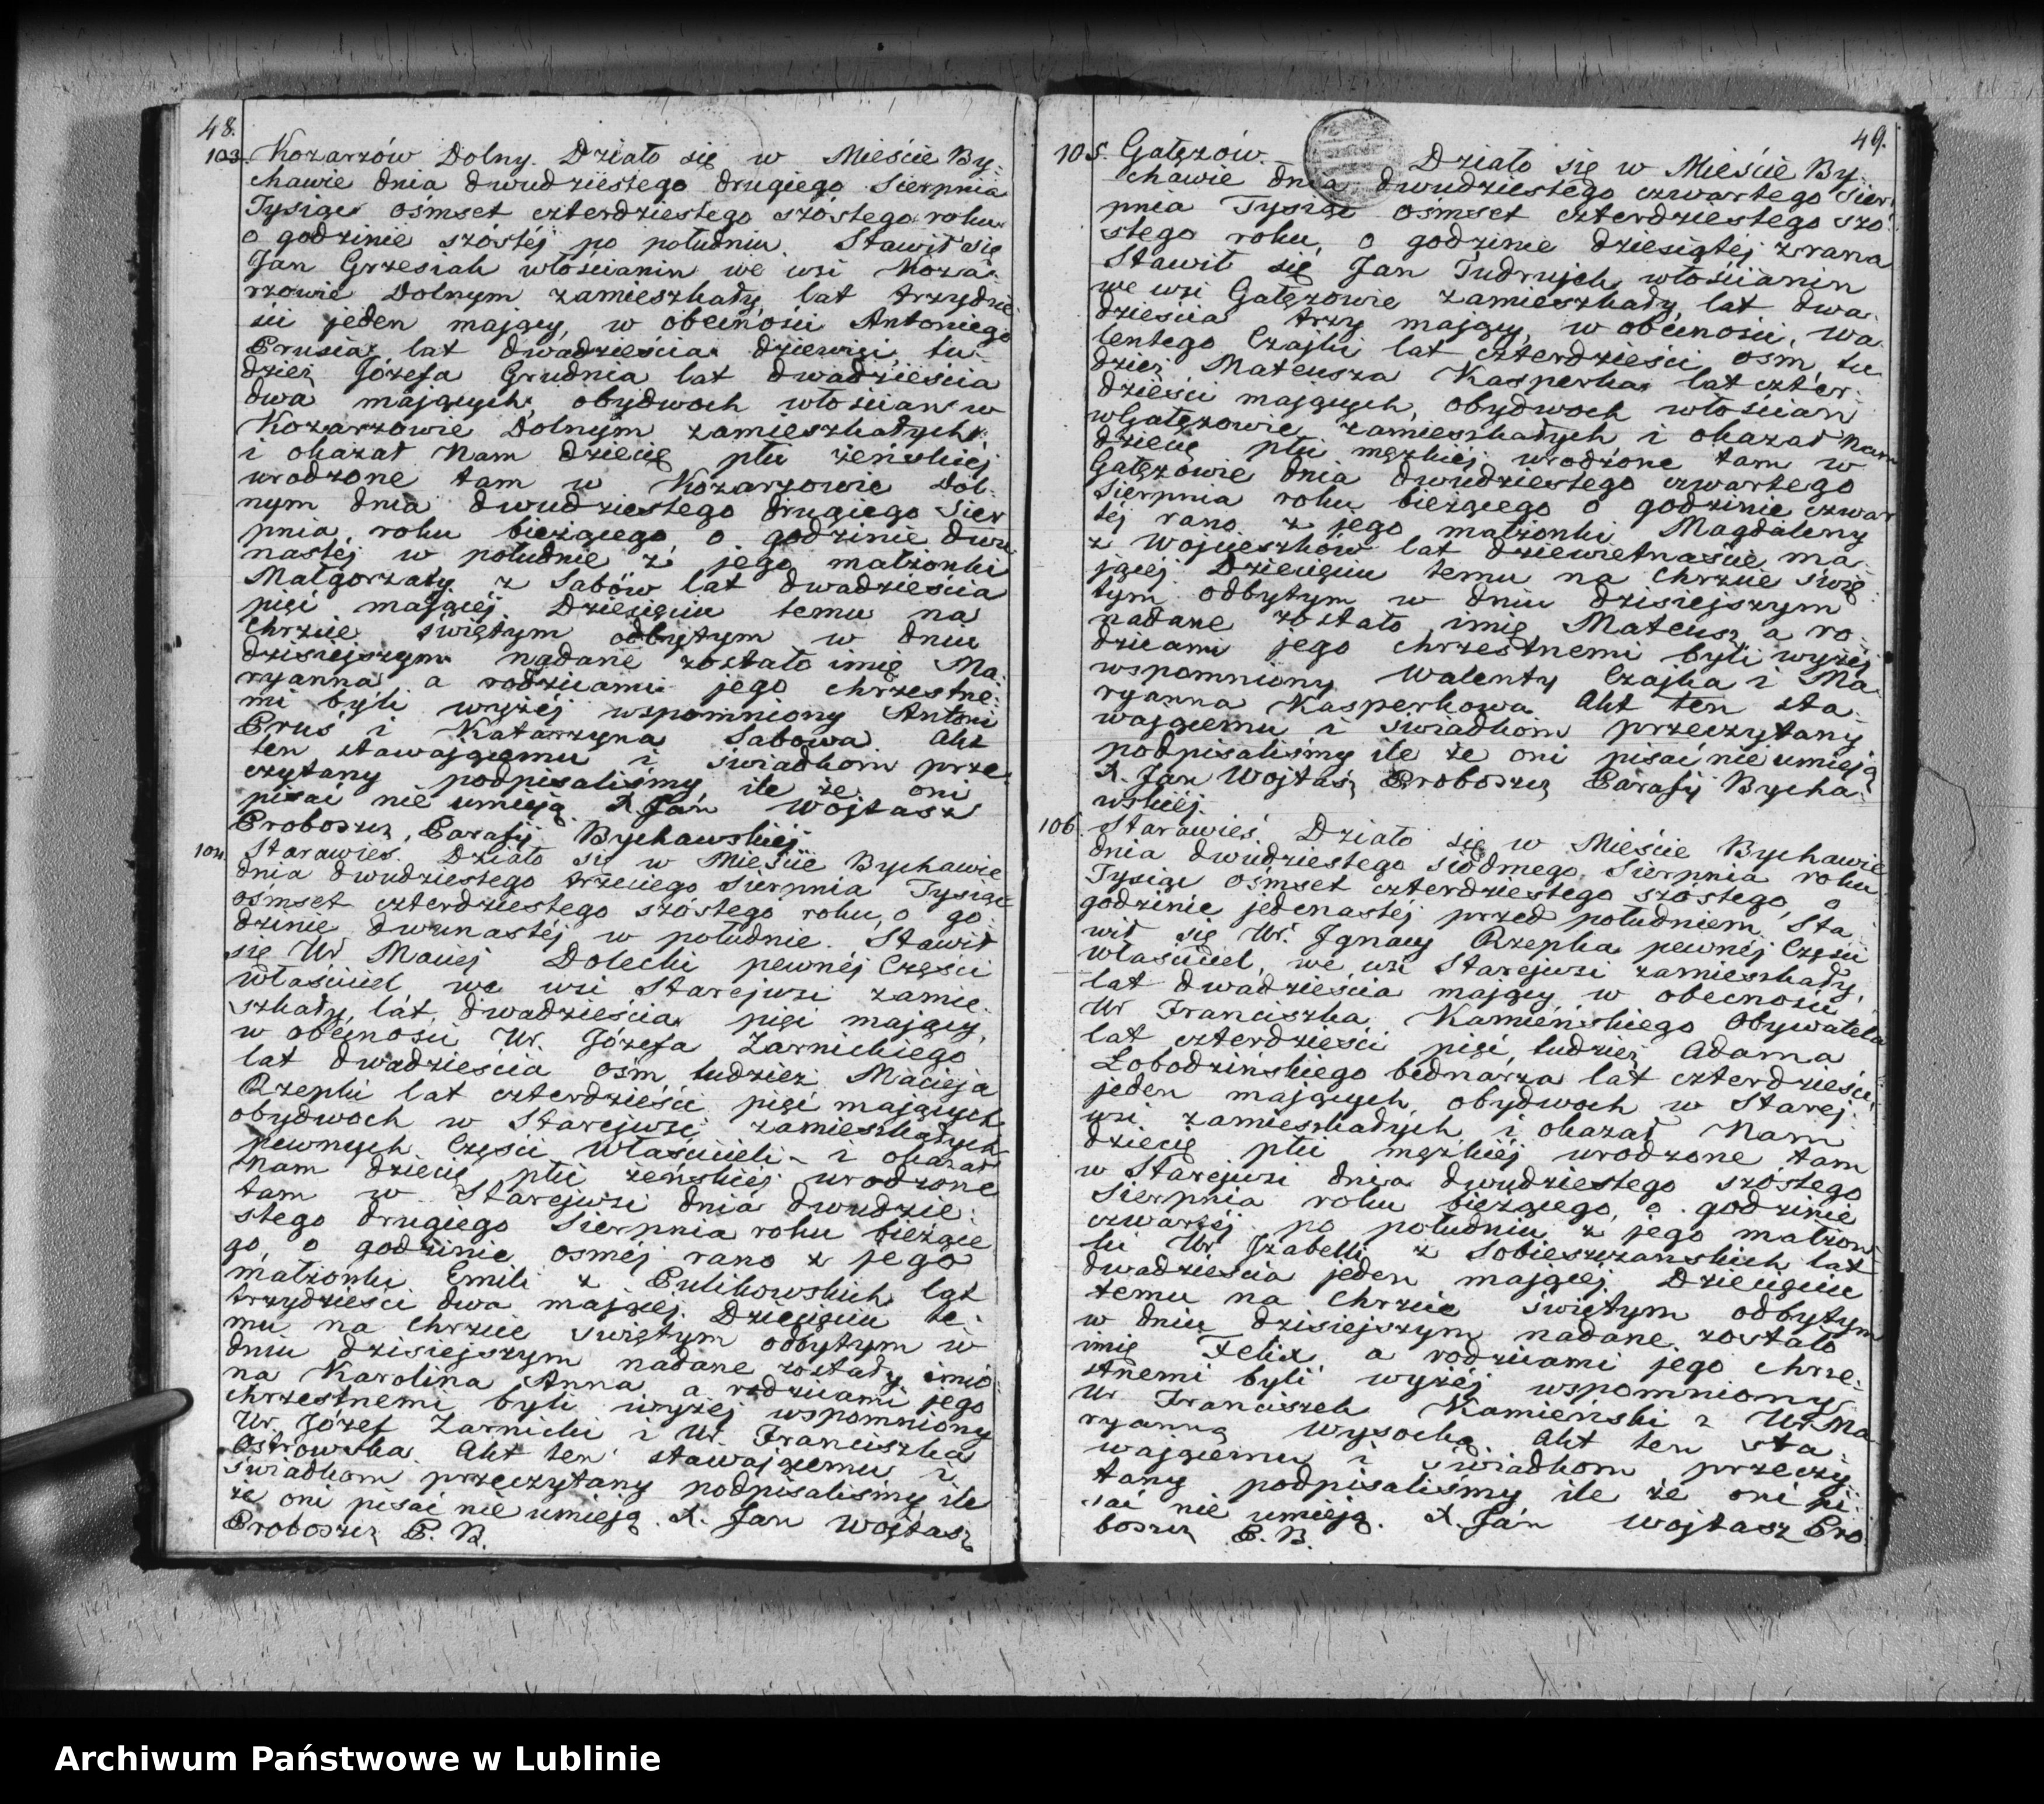 48.
103. Kozarzów Dolny. Działo się w Mieście By-
chawie dnia dwudziestego drugiego Sierpnia
Tysiąc ośmset czterdziestego szóstego roku
o godzinie szóstéj po południu. Stawił się
Jan Grzesiak włościanin we wsi Koza-
rzowie Dolnym zamieszkały, lat trzydzie-
ści jeden mający, w obecności Antoniego
Prusia lat dwadzieścia dziewięć, tu-
dzież Józefa Grudnia lat dwadzieścia
dwa mających, obydwoch włościan w
Kozarzowie Dolnym zamieszkałych
i okazał Nam dziecię płci żeńskiéj
urodzone tam w Kozarzowie Dol-
nym dnia dwudziestego drugiego Sier
pnia, roku bieżącego o godzinie dwu-
nastéj w południe z jego małżonki
Małgorzaty z Sabów lat dwadzieścia
pięć mającéj. Dziecięciu temu na
chrzcie świętym odbytym w dniu
dzisiejszym nadane zostało imię Ma-
ryanna a rodzicami jego chrzestne-
mi byli wyżéj wspomniony Antoni
Pruś i Katarzyna Sabowa. Akt
ten stawającemu i świadkom prze-
czytany podpisaliśmy, ile że oni
pisać nie umieją. X. Jan Wojtasz
Proboszcz Parafij Bychawskiéj
104. Starawieś. Działo się w Mieście Bychawie
dnia dwudziestego trzeciego Sierpnia Tysiąc
ośmset czterdziestego szóstego roku, o go-
dzinie dwunastéj w południe. Stawił
się Ur Maciej Dolecki pewnéj Części
właściciel, we wsi Starejwsi zamie-
szkały, lat dwadzieścia pięć mający,
w obecności Ur. Józefa Żarnickiego
lat dwadzieścia ośm tudzież Macieja
Rzepki lat czterdzieści pięć mających
obydwoch w Starejwsi zamieszkałych
pewnych Części Właścicieli - i okazał
Nam dziecię płci żeńskiéj urodzone
tam w Starejwsi dnia dwudzie-
stego drugiego Sierpnia roku bieżące
go, o godzinie osméj rano z jego
małżonki Emili z Pulikowskich lat
trzydzieści dwa mającéj. Dziecięciu te-
mu na Chrzcie świętym odbytym w
dniu dzisiejszym nadane zostały imio-
na Karolina Anna a rodzicami jego
chrzestnemi byli wyżéj wspomniony
Ur. Józef Żarnicki i Ur. Franciszka
Ostrowska. Akt ten stawającemu i
świadkom przeczytany podpisaliśmy ile
że oni pisać nie umieją. X. Jan Wojtasz
Proboszcz P. B.
49.
105. Gałęzów. Działo się w Mieście By-
chawie dnia dwudziestego czwartego Sier
pnia Tysiąc ośmset czterdziestego szó-
stego roku, o godzinie dziesiątéj zrana
Stawił się Jan Tudrujek, włościanin
we wsi Gałęzowie zamieszkały, lat dwa-
dzieścia trzy mający, w obecności, Wa-
lentego Czajki lat czterdzieści ośm, tu
dzież Mateusza Kasperka lat czter-
dzieści mających, obydwoch włościan
w Gałęzowie, zamieszkałych i okazał Nam
dziecię płci męzkiéj urodzone tam w
Gałęzowie dnia dwudziestego czwartego
Sierpnia roku bieżącego o godzinie czwar
téj rano z jego małżonki Magdaleny
z Wojcieszków lat dziewietnaście ma-
jącej. Dziecięciu temu na chrzcie Świę
tym odbytym w dniu dzisiejszym
nadane zostało imię Mateusz a ro-
dzicami jego chrzestnemi byli wyżéj
wspomniony Walenty Czajka i Ma-
ryanna Kasperkowa. Akt ten sta-
wającemu i świadkom przeczytany
podpisaliśmy ile że oni pisać nie umieją
X. Jan Wojtasz Proboszcz Parafij Bycha-
wskiéj.
106. Starawieś. Działo się w Mieście Bychawie
dnia dwudziestego siódmego Sierpnia roku
Tysiąc ośmset czterdziestego szóstego, o
godzinie jedenastéj przed południem, Sta
wił się Ur. Ignacy Rzepka pewnéj Części
właściciel, we wsi Starejwsi zamieszkały,
lat dwadzieścia mający w obecności
Ur Franciszka Kamieńskiego Obywatela
lat czterdzieści pięć, tudzież Adama
Łobodzińskiego bednarza lat czterdzieści
jeden mających, obydwoch w Starej-
wsi zamieszkałych i okazał Nam
dziecię płci męzkiéj urodzone tam
w Starejwsi dnia dwudziestego szóstego
Sierpnia roku bieżącego, o godzinie
czwartéj po południu z jego małżon
ki Ur. Izabelli z Sobieszczańskich lat
dwadzieścia jeden mającéj. Dziecięciu
temu na Chrzcie świętym odbytym
w dniu dzisiejszym nadane zostało
imię Felix, a rodzicami jego chrze-
stnemi byli wyżéj wspomniony
Ur Franciszek Kamieński i Ur. Ma
ryanna Wysocka. Akt ten sta-
wającemu i świadkom przeczy
tany podpisaliśmy ile że oni pi-
sać nie umieją. X. Jan Wojtasz Pro
boszcz P. B.
Archiwum Państwowe w Lublinie